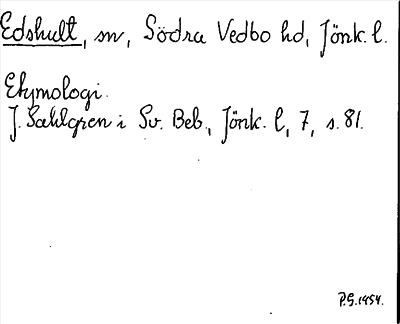 Edshult, sn, Södra Vedbo hd, Jönk. l.
Etymologi.
J. Sahlgren i Sv. Beb., Jönk. l, 7, s. 81.
P.G. 1954.